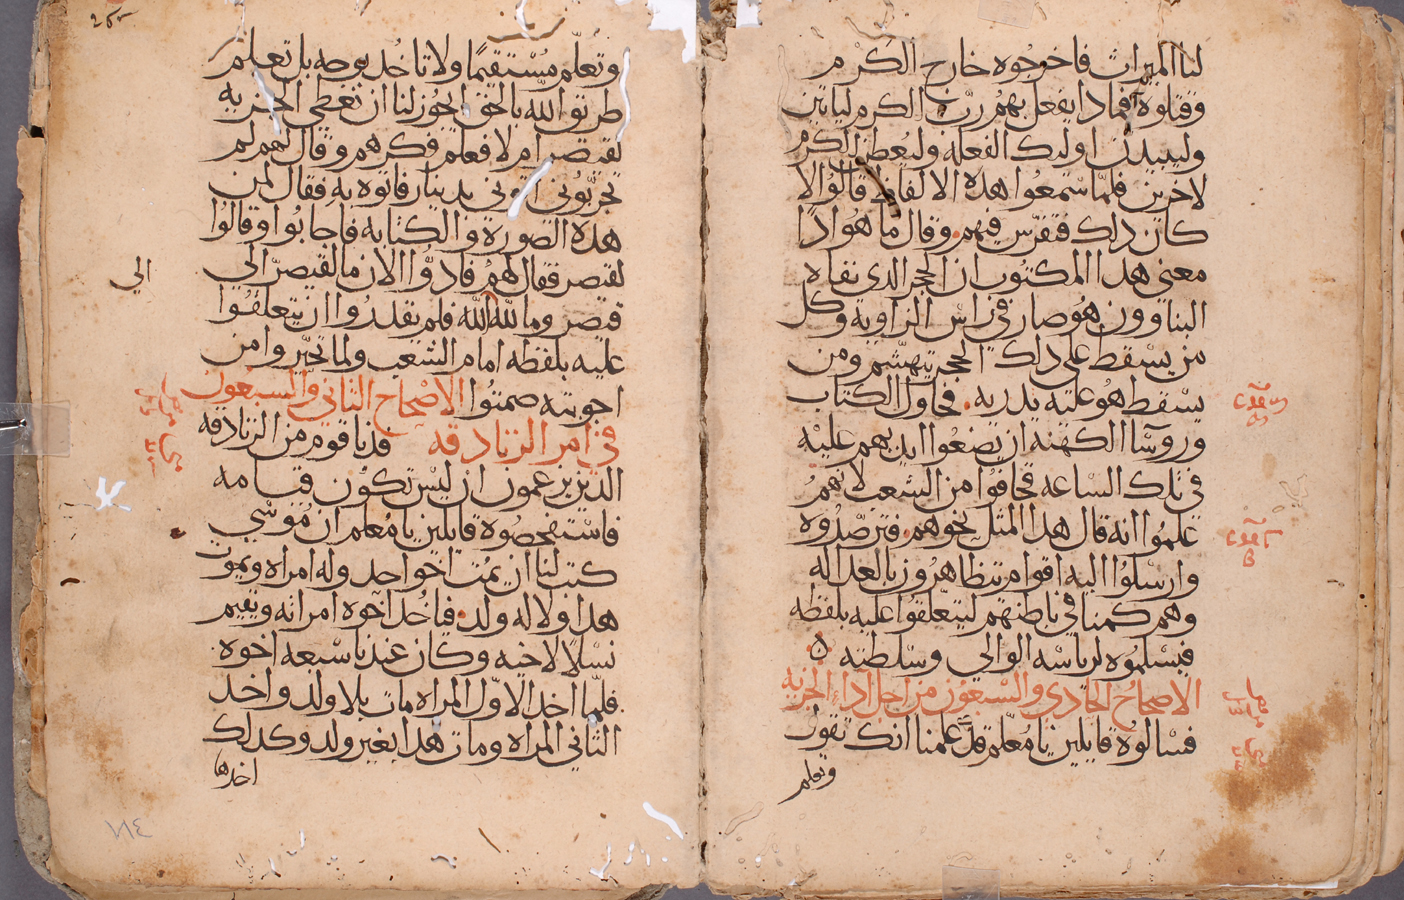 لنا الميراث فاخرجوه خارج الكرم
وقتلوه فماذا يفعل بهم رب الكرم لياتين
وليبيدن اوليك الفعله وليعطين الكرم
لاخرين فلما سمعوا هده الالفاظ قالوا لا
كان دلك فتفرس فيهم وقال ما هوا ادا
معني هدا المكتوب ان الحجر الدي نفاه
البناوون هو صار في راس الزاويه وكل
من يسقط علي داك الحجر يتهشم ومن
يسقط هو عليه يدريه فحاول الكتاب
وروسا الكهنة ان يضعوا ايديهم عليه
في تلك الساعه فخافوا من الشعب لانهم
علموا انه قال هدا المثل نحوهم فترصدوه
وارسلوا اليه اقوام يتظاهرون بالعداله
وهم كمنا في باطنهم ليتعلقوا عليه بلفظه
فيسلموه لرياسه الوالي وسلطنته
الاصحاح الحادي والسبعون من اجل آداء الجزيه
فسالوه قايلين يا معلم قد علمنا انك تقول
وتعلم
وتعلم مستقيمًا ولا تاخد بوجه بل تعلم
طريق الله بالحق ايجوز لنا ان نعطي الجزيه
لقيصر ام لا فعلم فكرهم وقال لهم لم
تجربوني اروني بدينار فاتوه به فقال لمن
هده الصورة والكتابه فاجابوا وقالوا
لقيصر فقال لهم فادوا الان ما لقيصر الي
قيصر وما لله الله فلم يقدروا ان يتعلقوا
الي
عليه بلفظه امام الشعب ولما تحيروا من
اجوبته صمتوا الاصحاح الثاني والسبعون
في امر الزنادقه فدنا قوم من الزنادقه
الدين يزعمون ان ليس تكون قيامه
فاستفحصوه قايلين يا معلم ان موسي
كتب لنا ان يمت اخو احد وله امراه ويموت
هدا ولا له ولد فياخد اخوه امراته ويقيم
نسلا لاخيه وكان عندنا سبعه اخوه
فلما اخد الاول المراه مات بلا ولد واخد
الثاني المراه ومات هدا بغير ولد وكدلك
اخدها
٢٨٤